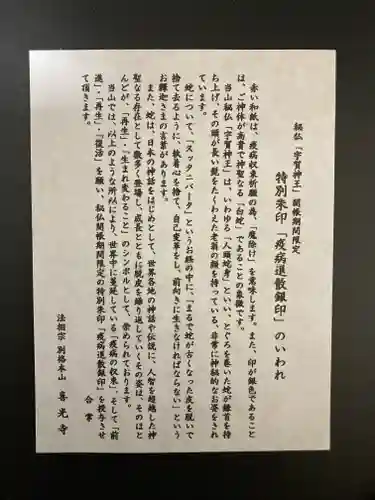 秘仏「宇賀神王」開帳期間限定
特別朱印「疫病退散銀印」のいわれ
赤い和紙は、疫病収束祈願の為、「魔除け」を意味します。また、印が銀色であること
は、ご神体が高貴で神聖なる「白蛇」であることの象徴です。
当山秘仏「宇賀神王」は、いわゆる「人頭蛇身」といい、とぐろを巻いた蛇が鎌首を持
ち上げ、その頭が長い髭をたくわえた老翁の顔を持っている、非常に神秘的なお姿をされ
ています。
蛇について、「スッタニパータ」というお経の中に、「まるで蛇が古くなった皮を脱いで
捨て去るように、執着心を捨て、自己変革をし、前向きに生きなければならない」という
お釈迦さまの言葉があります。
また、蛇は、日本の神話をはじめとして、世界各地の神話や伝説に、人智を超越した神
聖なる存在として数多く登場し、成長とともに脱皮を繰り返していくその姿は、そのほと
んどが、「再生」・「生まれ変わること」のシンボルとして、崇められております。
当山では、以上のような所以により、世界中に蔓延している「疫病の収束」、そして「前
進」・「再生」・「復活」を願い、秘仏開帳期間限定の特別朱印「疫病退散銀印」を授与させ
て頂きます。
合掌
法相宗 別格本山 喜光寺